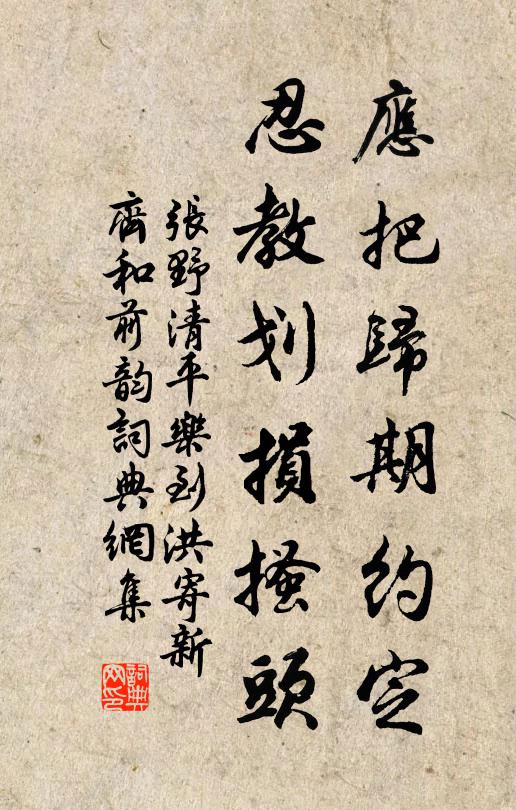 應把歸期約定
忍教划損搔頭
張野清平樂到洪寄新
齋和前韵詞典網集
詞典
网印